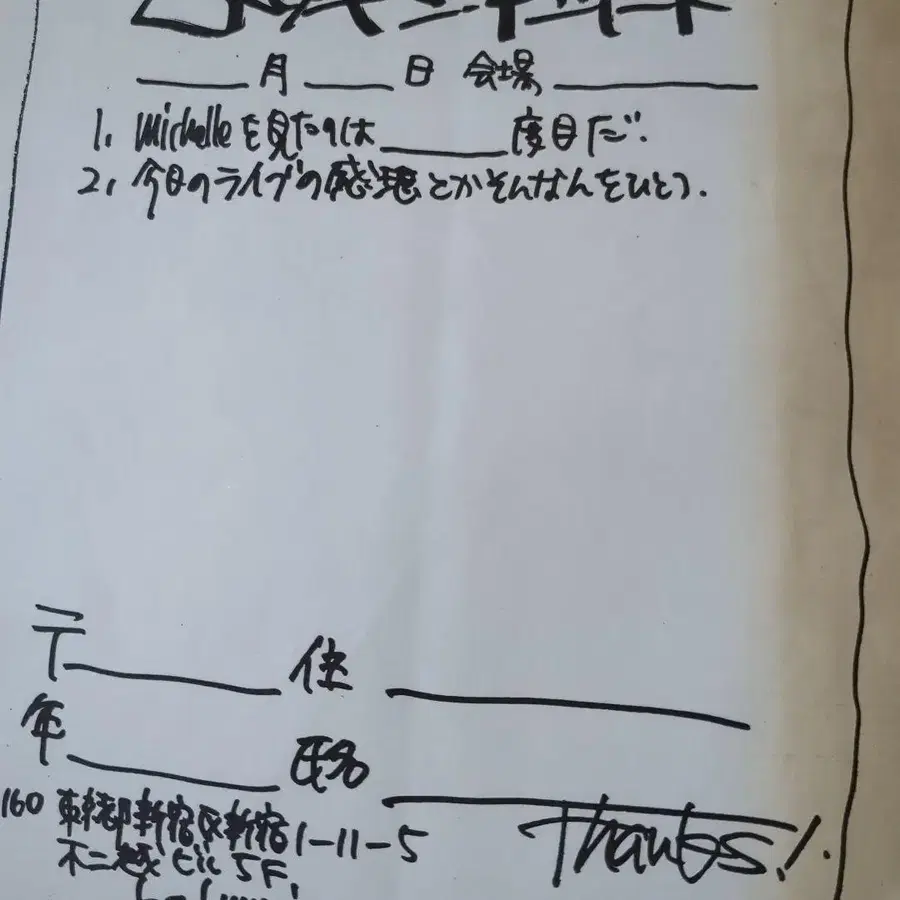 ___月___日 会場______
1. Michelleを見たのは____度目だ.
2. 今日のライブの感想とかそんなんをひとつ.
〒______ 住______
年______ 氏名______
160 東京都新宿区新宿1-11-5
不二越ビル5F.
Thanks!